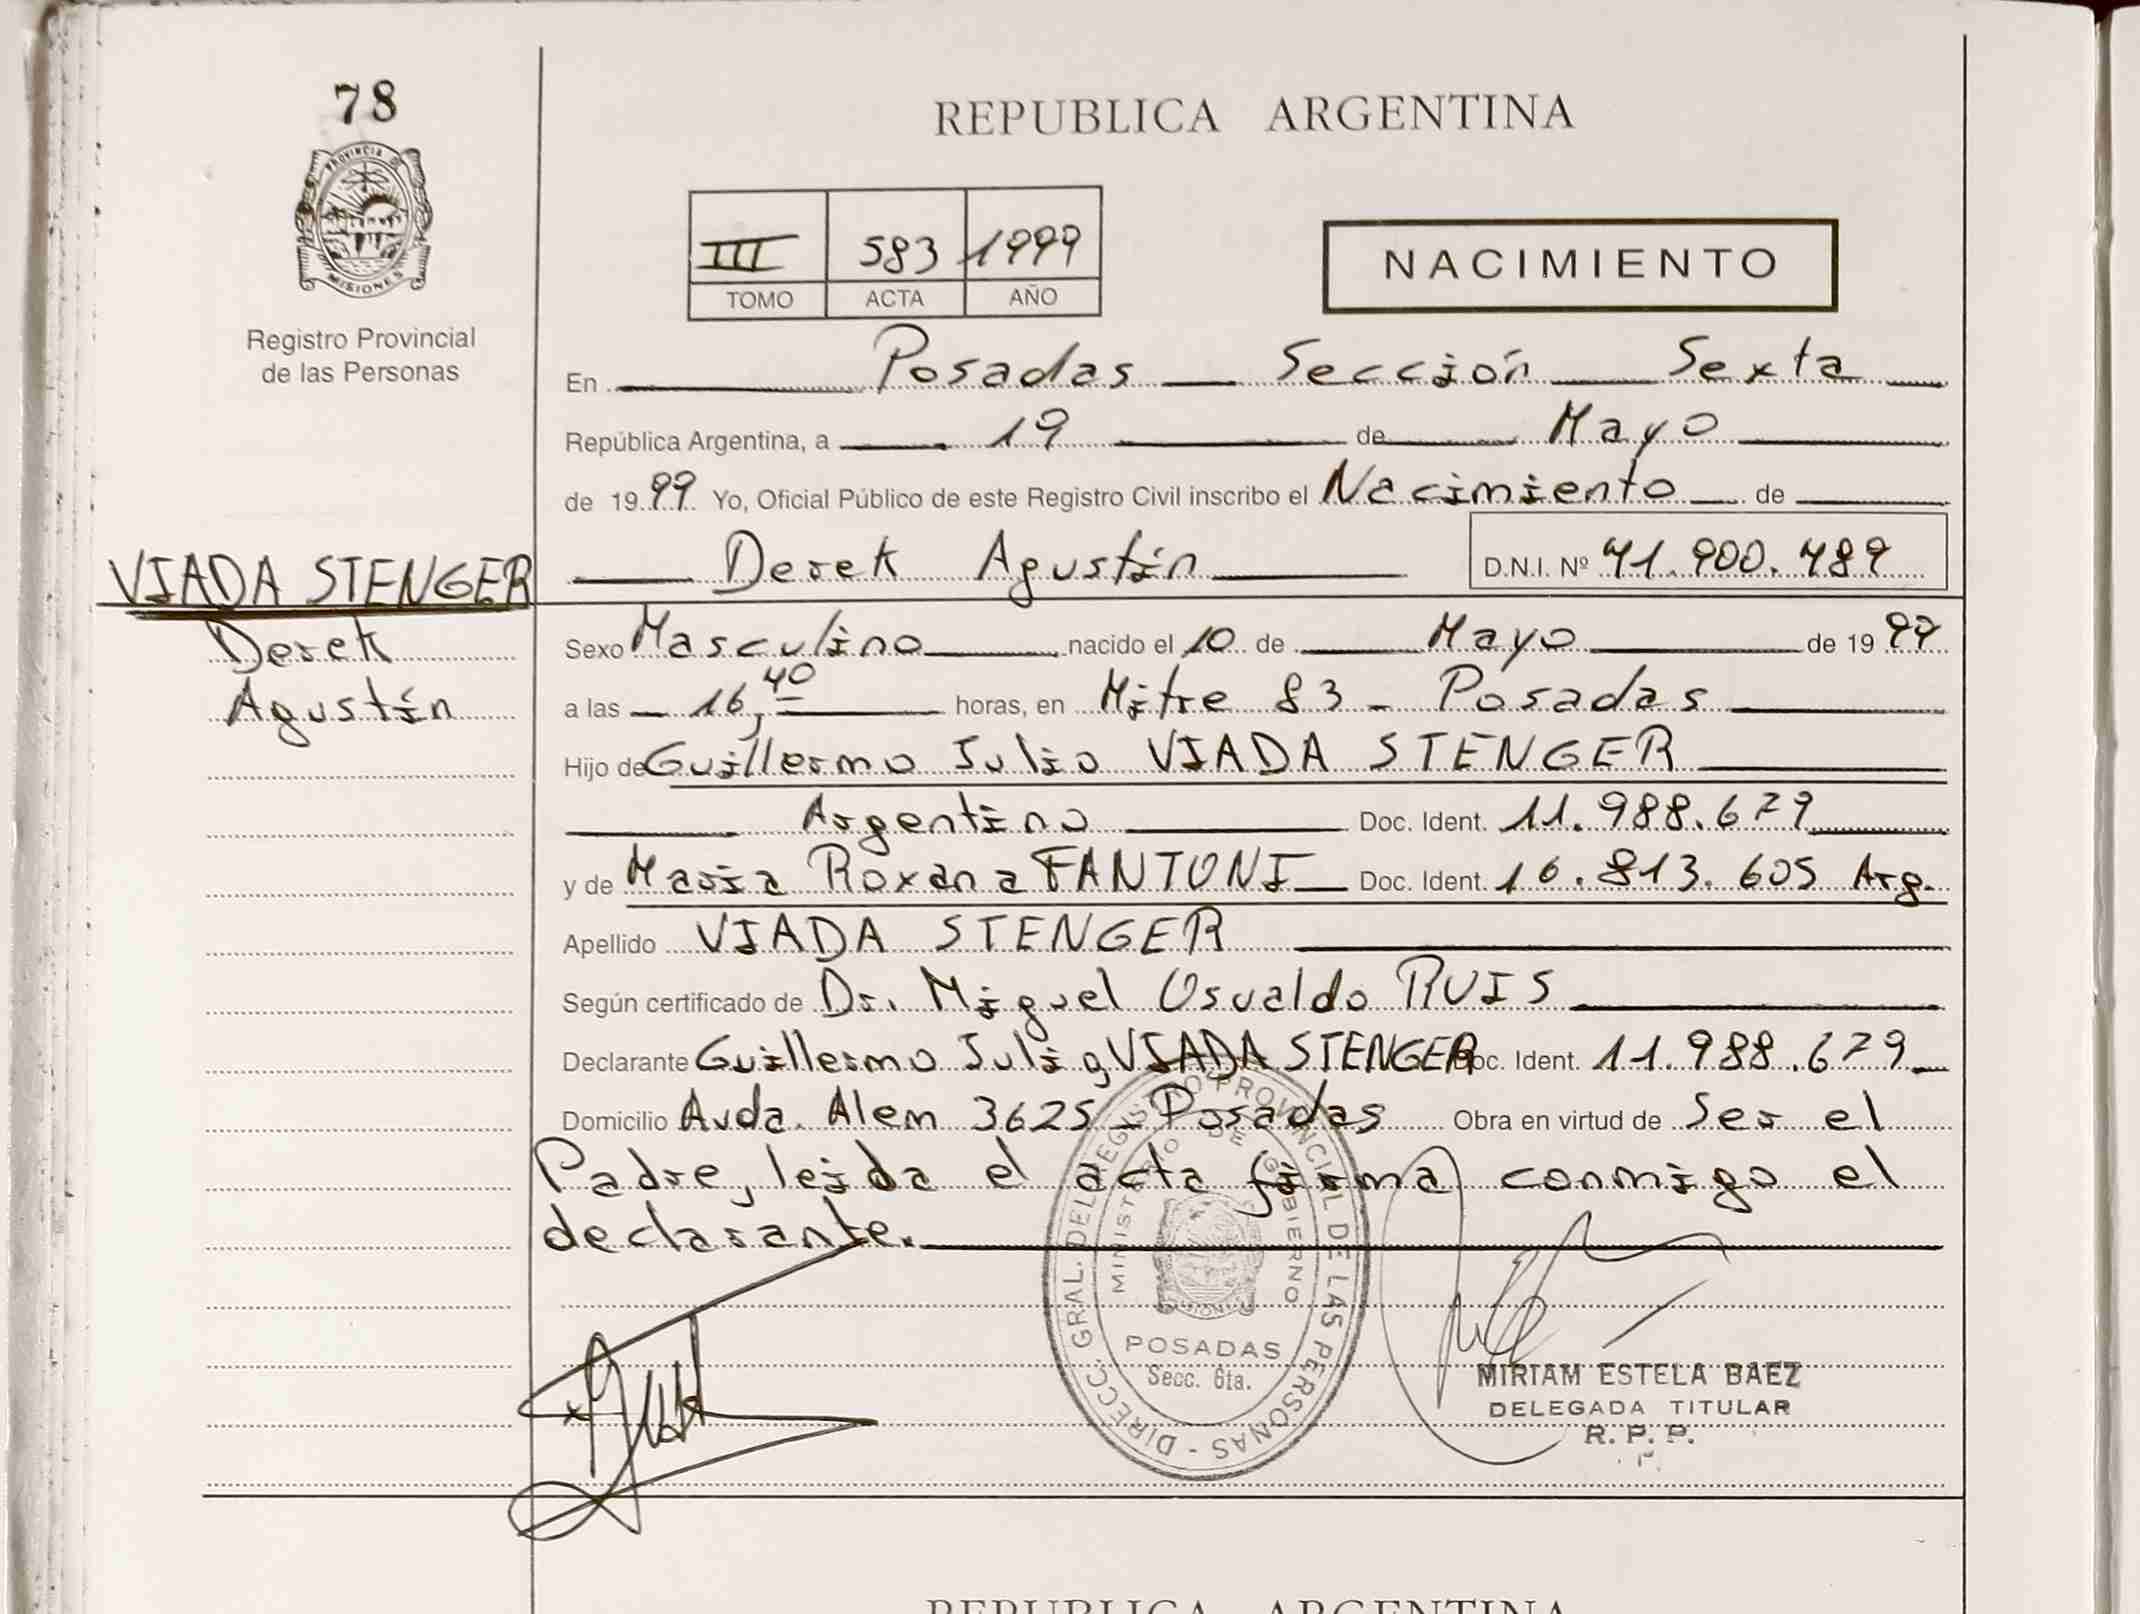 78
PROVINCIA DE
MISIONES
Registro Provincial
de las Personas
REPUBLICA ARGENTINA
III 583 1999
TOMO ACTA AÑO
NACIMIENTO
En Posadas Sección Sexta
República Argentina, a 19 de Mayo
de 1999 Yo, Oficial Público de este Registro Civil inscribo el Nacimiento de
VIADA STENGER
Derek Agustín D.N.I. Nº 41.900.489
Derek
Agustín
Sexo Masculino nacido el 10 de Mayo de 1999
a las 16,40 horas, en Mitre 83 - Posadas
Hijo de Guillermo Julio VIADA STENGER
Argentino Doc. Ident. 11.988.679
y de Maria Roxana FANTONI Doc. Ident. 16.813.605 Arg.
Apellido VIADA STENGER
Según certificado de Dr. Miguel Osvaldo RUIS
Declarante Guillermo Julio VIADA STENGER Doc. Ident. 11.988.679
Domicilio Avda. Alem 3625 - Posadas Obra en virtud de Ser el
Padre, leida el acta firma conmigo el
declarante.
DIRECC. GRAL. DEL REGISTRO PROVINCIAL DE LAS PERSONAS -
MINISTERIO DE GOBIERNO
MISIONES
POSADAS
Secc. 6ta.
MIRIAM ESTELA BAEZ
DELEGADA TITULAR
R. P. P.
REPUBLICA ARGENTINA